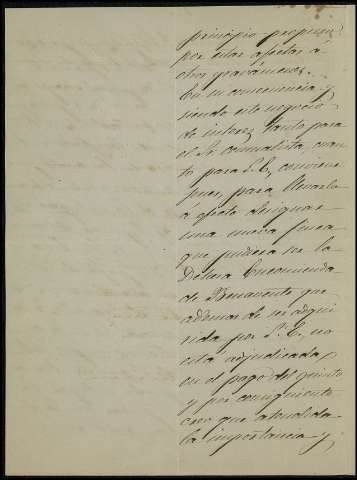 principio propuso
por estar afectas á
otros gravámenes.
En su consecuencia y
siendo este negocio
de interes, tanto para
el Sr. comunalista, cuan
to para S. E., conviene
pues, para llevarlo
á efecto designar
una nueva finca
que pudiera ser la
Dehesa Encomienda
de Benavente que
además de ser adqui
rida por S. E., no
está adjudicada
en el pago del quinto
y por consiguiente
creo que atendida
la importancia y,